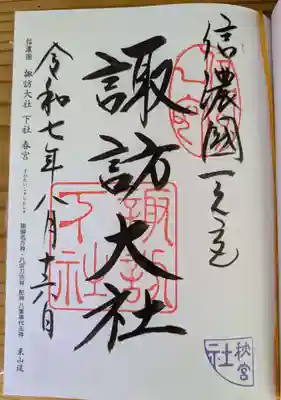 信濃國一之宮
諏訪大社
諏訪
下社
秋宮
社
令和七年八月十六日
信濃国 諏訪大社 下社 春宮
東山道